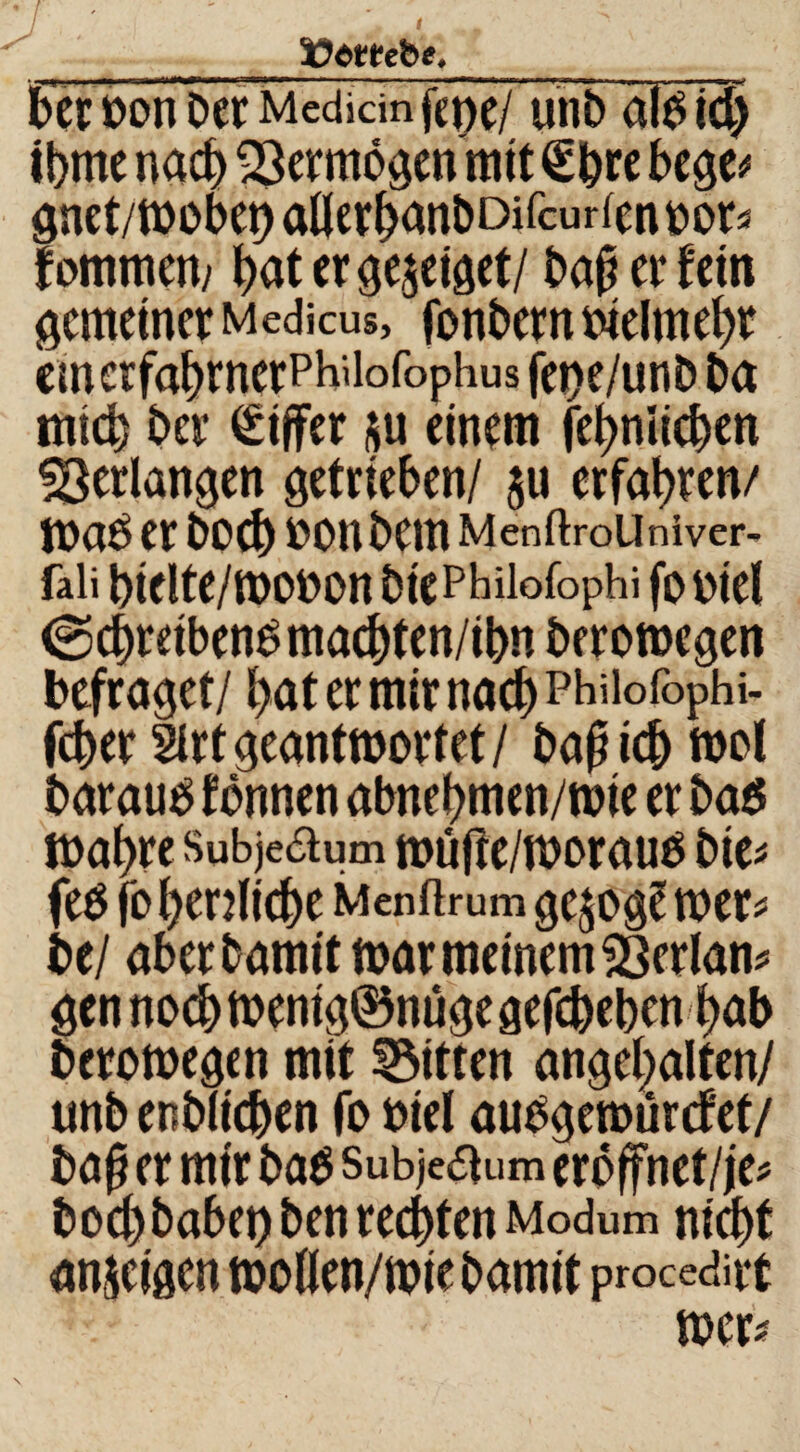 Vorrede.
ber von der Medicin seye/ und als ich
ihme nach Vermögen mit Ehre bege-
gnet/wobey allerhand Discursen vor-
kommen/ hat er gezeiget/ daß er kein
gemeiner Medicus, sondern vielmehr
ein erfahrner Philosophus seye/und da
mich der Eiffer zu einem sehnlichen
Verlangen getrieben/ zu erfahren/
was er doch von dem Menstro Univer-
sali hielte/wovon die Philosophi so viel
Schreibens machten/ihn derowegen
befraget/ hat er mir nach Philosophi-
scher Art geantwortet/ daß ich wol
daraus können abnehmen/wie er das
wahre Subjectum wüste/woraus die-
ses so herzliche Menstrum gezogē wer-
de/ aber damit war meinem Verlan-
gen noch wenig Gnüge geschehen hab
derowegen mit Bitten angehalten/
und endlichen so viel ausgewürcket/
daß er mir das Subjectum eröffnet/je-
doch dabey den rechten Modum nicht
anzeigen wollen/wie damit procedirt
wer-